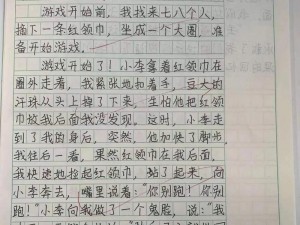 游戏开始前，我找来七八个人，
摘下一条红领巾，坐成一个大圈，准
备开始游戏。
游戏开始了！小李拿着红领巾在
圈外走着，我紧张地扣着手，豆大的
汗珠从头上掉了下来，生怕他把红领
巾放我后面我没发现。这时，小李走
到了我的身后，突然，他加快了脚步，
我往后一看，果然红领巾在我后面，
我快速地捡起红领巾，站了起来，向
小李奔去，嘴里说着：“你别跑！你别
跑！”小李向我做了一个鬼脸，说：“我